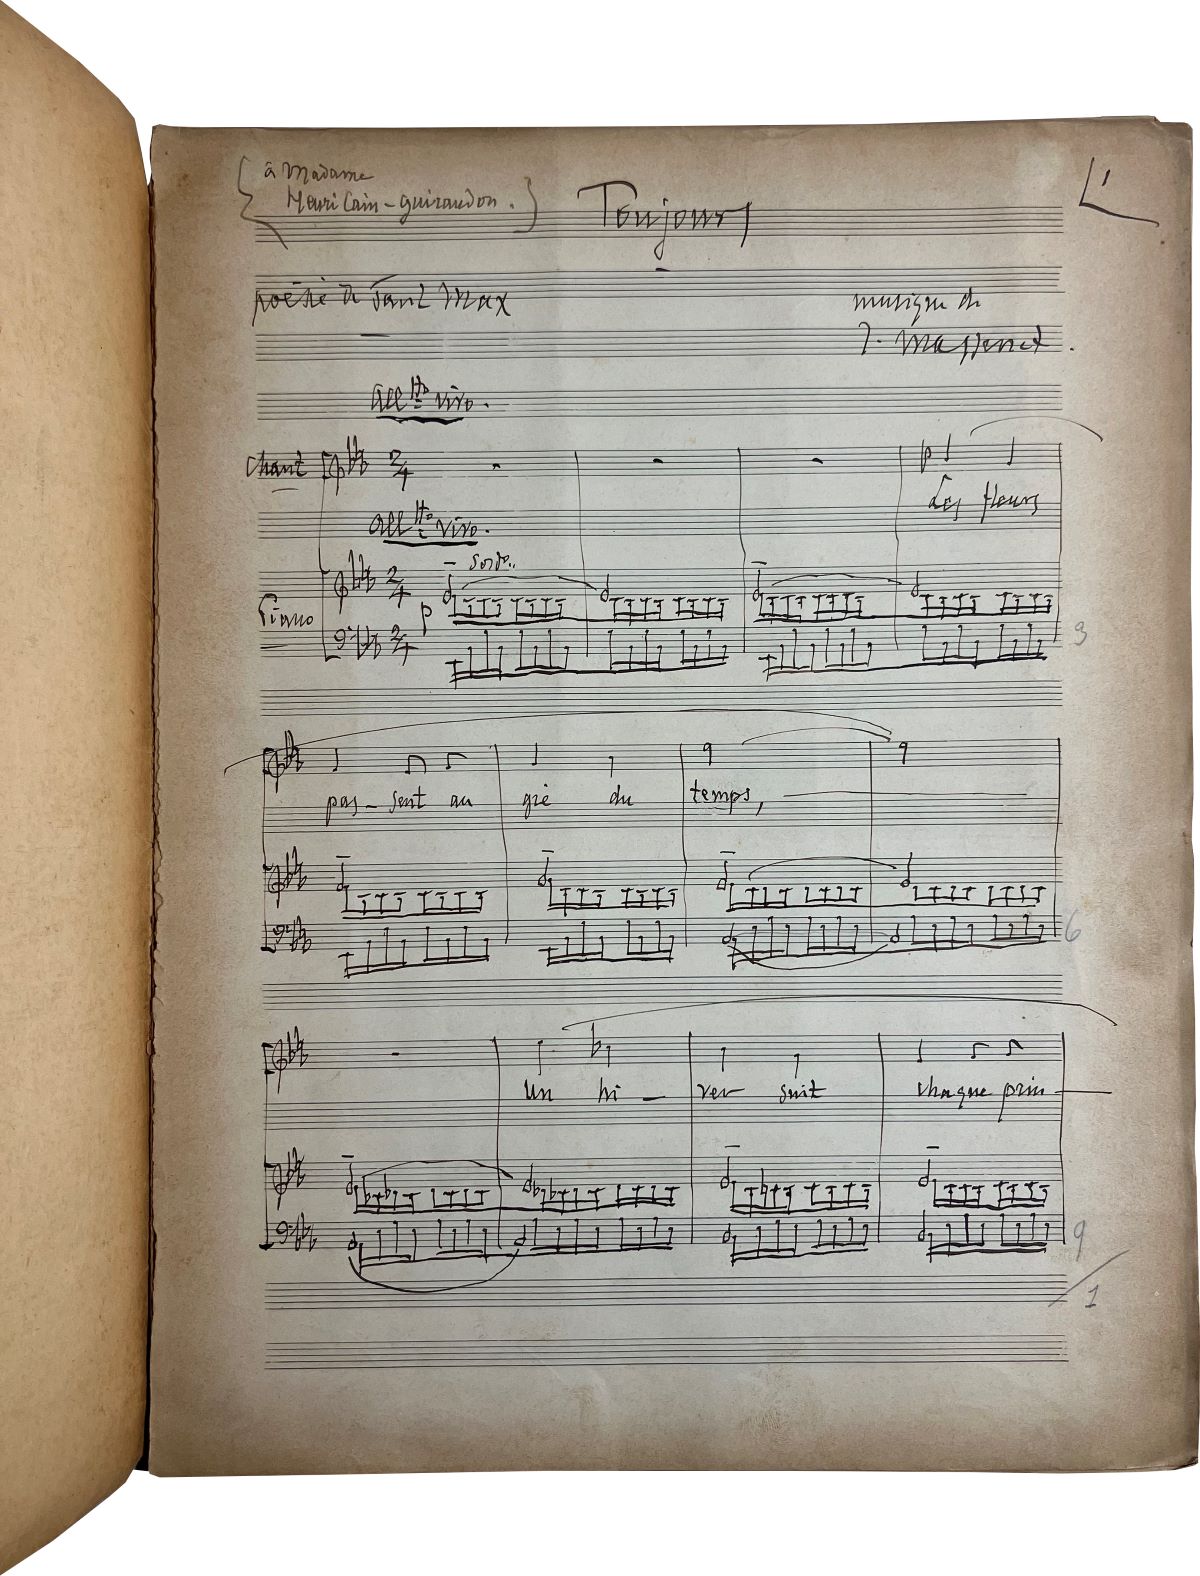 à Madame
Henri Cain - guiraudon.
Toujours
1
poésie de Paul Max
musique de
J. Massenet.
All^tto vivo.
Chant
2/4
p
Les fleurs
All^tto vivo.
Piano
2/4
2/4
p
sord..
3
pas - sent au gré du temps,
6
Un hi - ver suit chaque prin
9
1